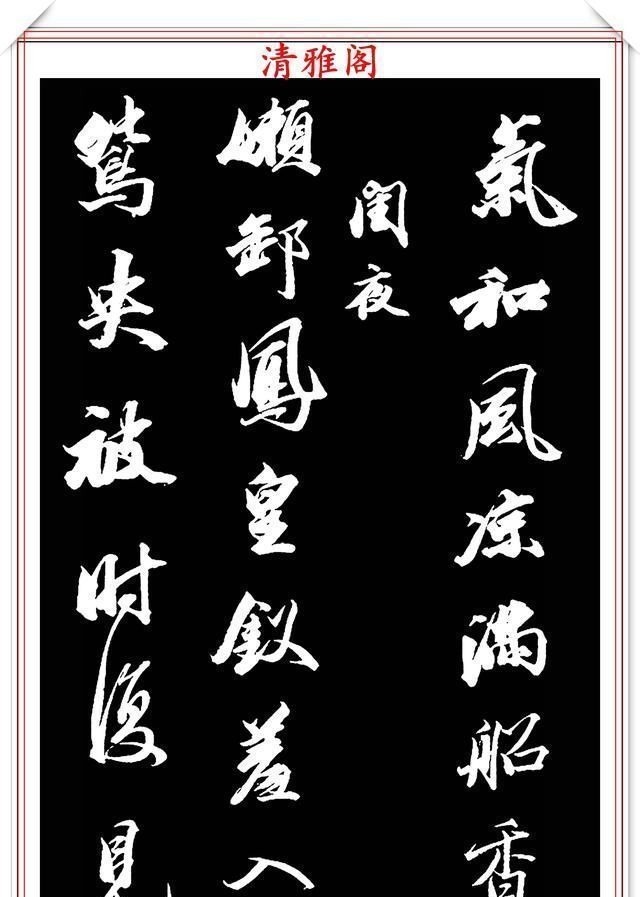 清雅阁
氣和風涼滿船香
閨夜
嬾卸鳳皇釵羞入
鴛央被时復見